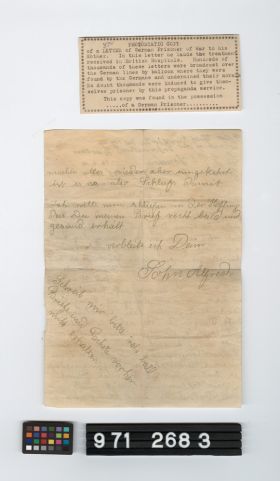 PHOTOSTATIC COPY
of a LETTER of German Prisoner of War to his
mother. In this letter he lauds the treatment
received in British Hospitals. Hundreds of
thousands of these letters were broadcast over
the German lines by baloons where they were
found by the Germans and undermined their morale
No doubt thousands were induced to give them-
selves prisoner by this propaganda service.
This copy was found in the possession
of a German Prisoner
alles wieder aber
ist es so aber Schluss damit
Ich will nun schließen in der Hoffnung
Das Du meinen Brief recht bald und
gesund erhält
verbleibe ich Dein
Sohn Alfred.
Schreib mir bitte recht bald
nicht
971 268 3